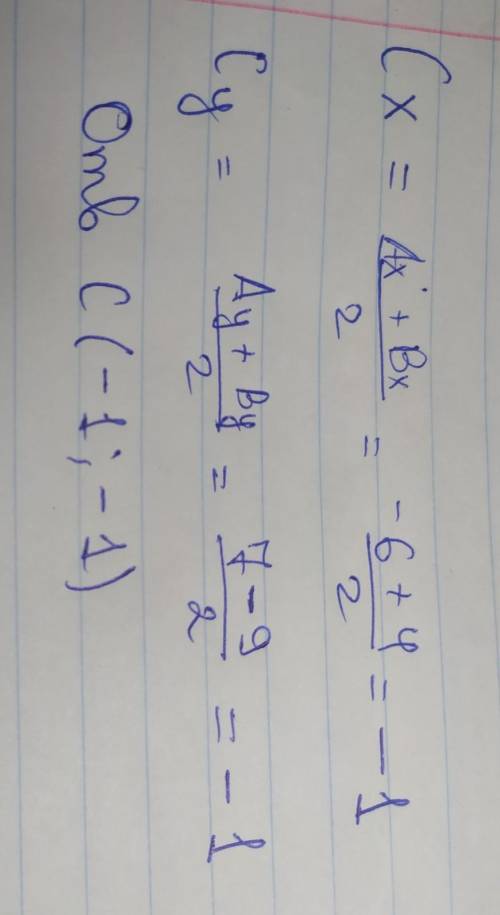 Cx = Ax + Bx / 2 = -6 + 4 / 2 = -1
Cy = Ay + By / 2 = 7 - 9 / 2 = -1
Отв C (-1; -1)